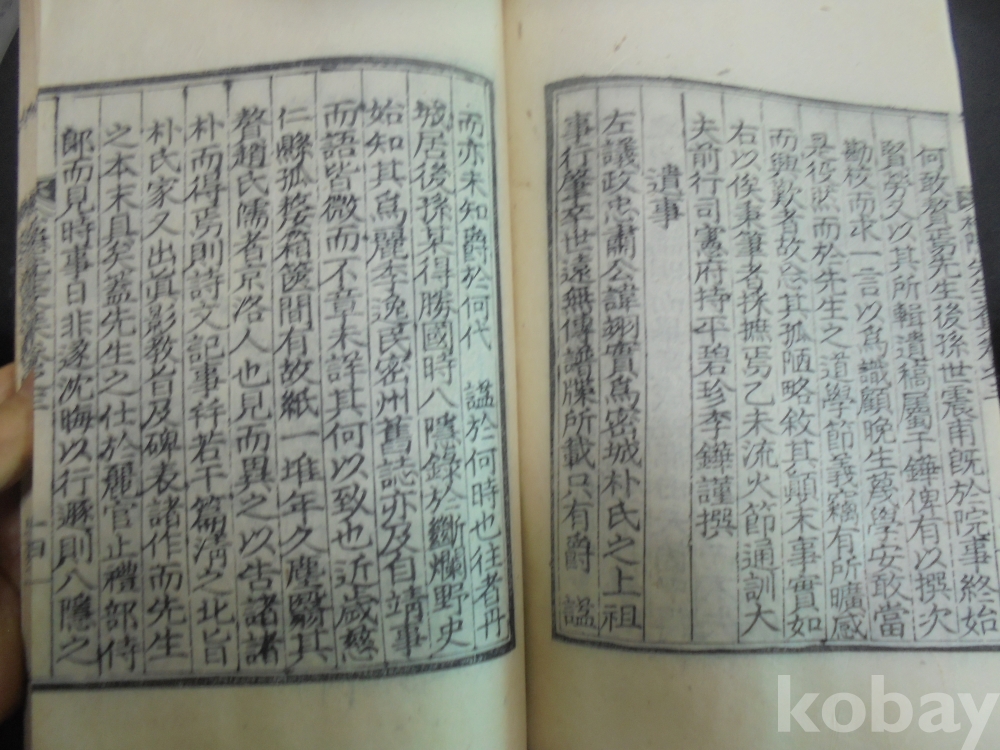 何敢贅焉先生後孫世震甫旣於院事終始
賢勞又以其所輯遺稿屬于鏵俾有以撰次
勘校而求一言以爲識顧晩生蔑學安敢當
是役然而於先生之道學節義竊有所曠感
而興歎者故忘其孤陋略敘其顚末事實如
右以俟秉筆者採摭焉乙未流火節通訓大
夫前行司憲府持平碧珍李鏵謹撰
遺事
左議政忠肅公諱翊實爲密城朴氏之上祖
事行肇卒世遠無傳譜牒所載只有爵 諡
而亦未知爵於何代 諡於何時也往者丹
城居後孫某得勝國時八隱錄於斷爛野史
始知其爲麗季逸民密州舊誌亦及自靖事
而語皆微而不章未詳其何以致也近歲慈
仁縣孤嫠箱篋間有故紙一堆年久塵翳其
聱趙氏儒者京洛人也見而異之以告諸諸
朴而得焉則詩文記事幷若干篇淸之北旨
朴氏家又出眞影敎旨及碑表諸作而先生
之本末具矣蓋先生之仕於麗官止禮部侍
郞而見時事日非遂沈晦以行遯則八隱之
kobay